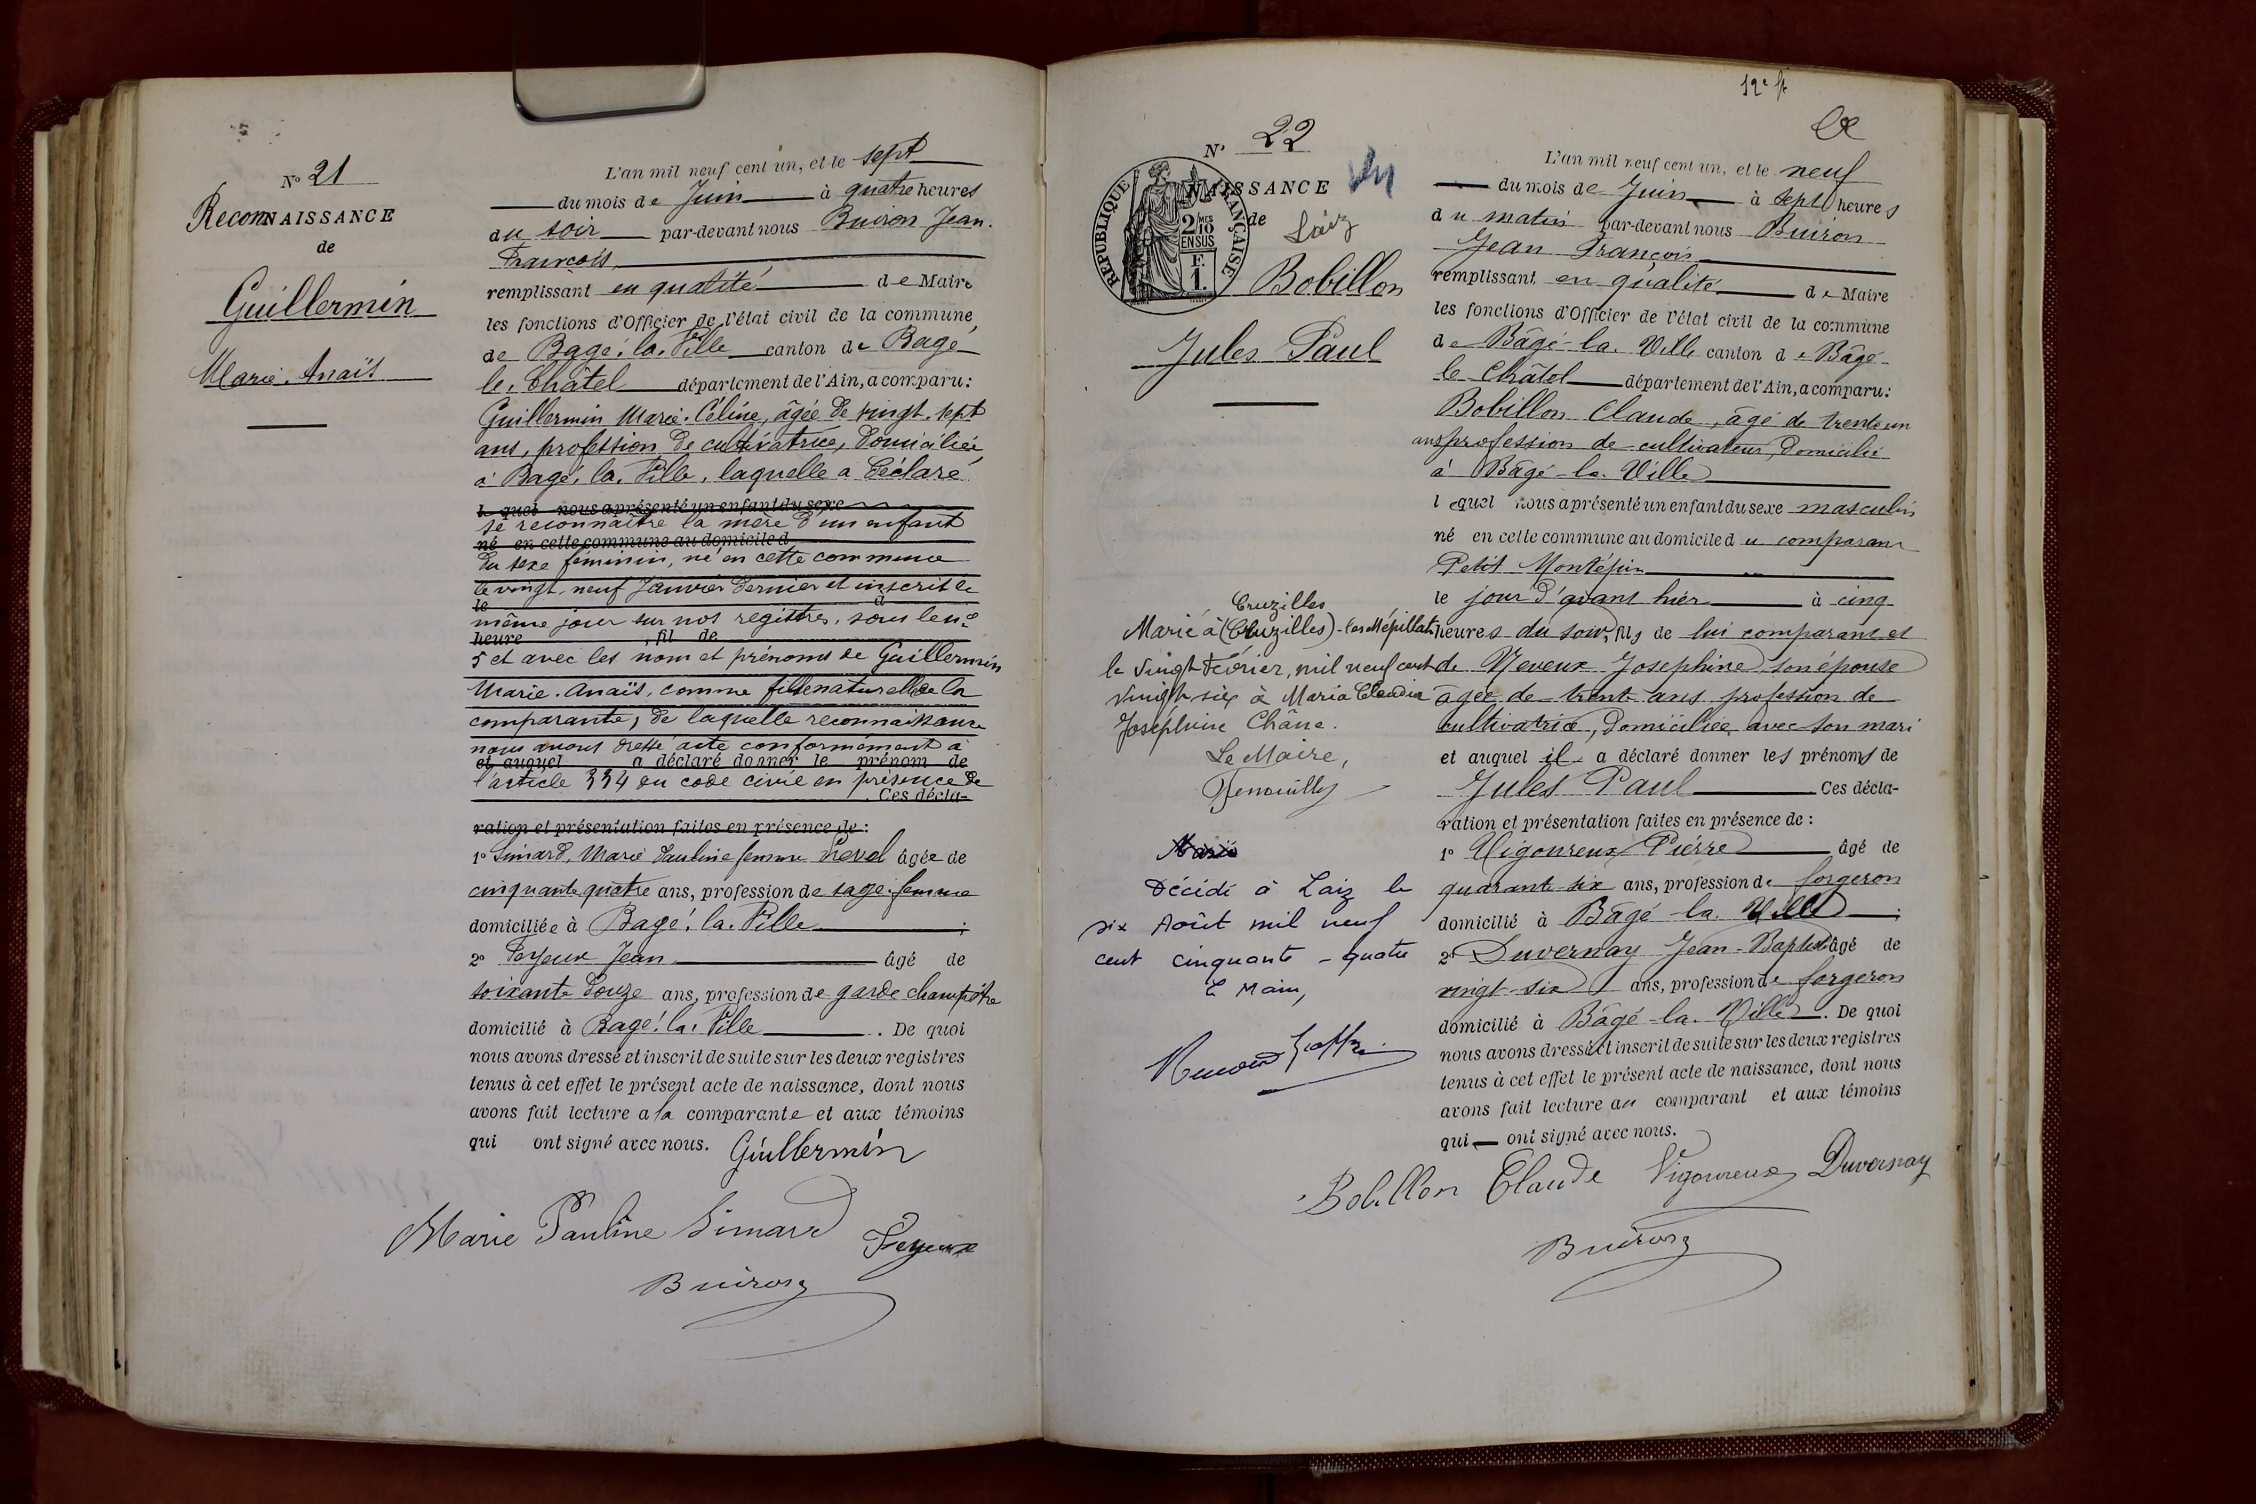 N° 21
ReconNAISSANCE
de
Guillermin
Marie. Anaïs
L'an mil neuf cent un, et le sept
du mois de Juin à quatre heures
du soir par-devant nous Buiron Jean.
François,
remplissant en qualité de Maire
les fonctions d'Officier de l'état civil de la commune
de Bagé. la. Ville canton de Bagé
le. Châtel département de l'Ain, a comparu:
Guillermin Marie. Céline, âgée de vingt. sept
ans, profession de cultivatrice, domiciliée
à Bagé. la. Ville, laquelle a déclaré
l quel nous a présenté un enfant du sexe
se reconnaître la mère d'un enfant
né en cette commune au domicile d
du sexe féminin, né en cette commune
le vingt. neuf Janvier dernier et inscrit le
le à
même jour sur nos registres, sous le n°
heure , fil de
5 et avec les nom et prénoms de Guillermin
Marie. Anaïs, comme fille naturelle de la
comparante, de laquelle reconnaissance
nous avons dressé acte conformément à
et auquel a déclaré donner le prénom de
l'article 334 du code civil en présence de
Ces décla-
ration et présentation faites en présence de :
1° Simard, Marie Pauline femme âgée de
cinquante quatre ans, profession de sage. femme
domiciliée à Bagé. la. Ville ;
2° Jean âgé de
soixante douze ans, profession de garde champêtre
domicilié à Bagé. la. Ville . De quoi
nous avons dressé et inscrit de suite sur les deux registres
tenus à cet effet le présent acte de naissance, dont nous
avons fait lecture a la comparante et aux témoins
qui ont signé avec nous. Guillermin
Marie Pauline Simard
Buiron
12e f
N° 22
NAISSANCE
de Laiz
RÉPUBLIQUE FRANÇAISE
2 MES 10
EN SUS
F.
1.
Bobillon
Jules Paul
L'an mil neuf cent un, et le neuf
du mois de Juin à sept heures
du matin par-devant nous Buiron
Jean François
remplissant en qualité de Maire
les fonctions d'Officier de l'état civil de la commune
de Bâgé-la. Ville canton de Bâgé-
le Châtel département de l'Ain, a comparu:
Bobillon Claude, âgé de trente un
ans profession de cultivateur, domicilié
à Bâgé-la. Ville
lequel nous a présenté un enfant du sexe masculin
né en cette commune au domicile du comparant
Petit Montépin
le jour d'avant hier à cinq
heures du soir, fils de lui comparant et
de Neveux Josephine son épouse
âgée de trente ans profession de
cultivatrice, domiciliée avec son mari
et auquel il a déclaré donner les prénoms de
Jules Paul Ces décla-
ration et présentation faites en présence de :
1° Vigoureux Pierre âgé de
quarante-six ans, profession de forgeron
domicilié à Bâgé la Ville ;
2° Duvernay Jean-Baptiste âgé de
vingt-six ans, profession de forgeron
domicilié à Bâgé-la. Ville . De quoi
nous avons dressé et inscrit de suite sur les deux registres
tenus à cet effet le présent acte de naissance, dont nous
avons fait lecture au comparant et aux témoins
qui ont signé avec nous.
Bobillon Claude Vigoureux Duvernay
Buiron
Cruzilles
Marié à (Cruzilles)-les Mépillat
le vingt Février, mil neuf cent
vingt six à Maria Claudia
Josephine Châne.
Le Maire,
Marié
Décédé à Laiz le
six Août mil neuf
cent cinquante-quatre
Le Maire,